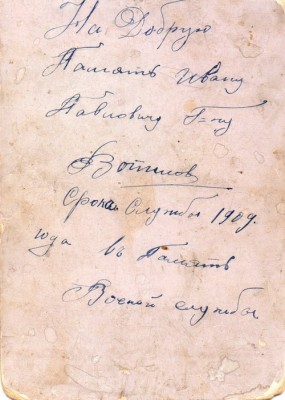 На Добрую
Память Ивану
Павловичу Г-ну
Вотинов
Срока Службы 1909.
года въ Память
Военой службы